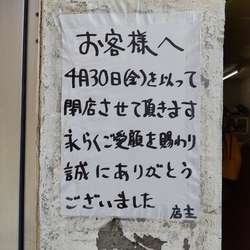 お客様へ
4月30日(金)を以って
閉店させて頂きます
永らくご愛顧を賜わり
誠にありがとう
ございました
店主